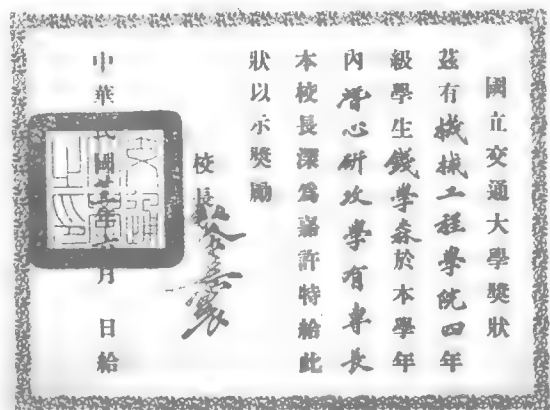 國立交通大學獎狀
茲有機械工程學院四年
級學生錢學森於本學年
內潛心研攷學有專長
本校長深爲嘉許特給此
狀以示獎勵
校長黎照寰
中華民國廿三年六月 日給